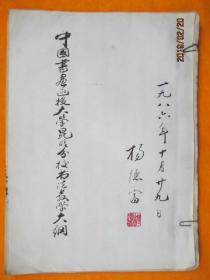 中國書畫函授大學昆明分校书法教學大綱
一九八六年十月廿九日
杨德富
2016/02/20